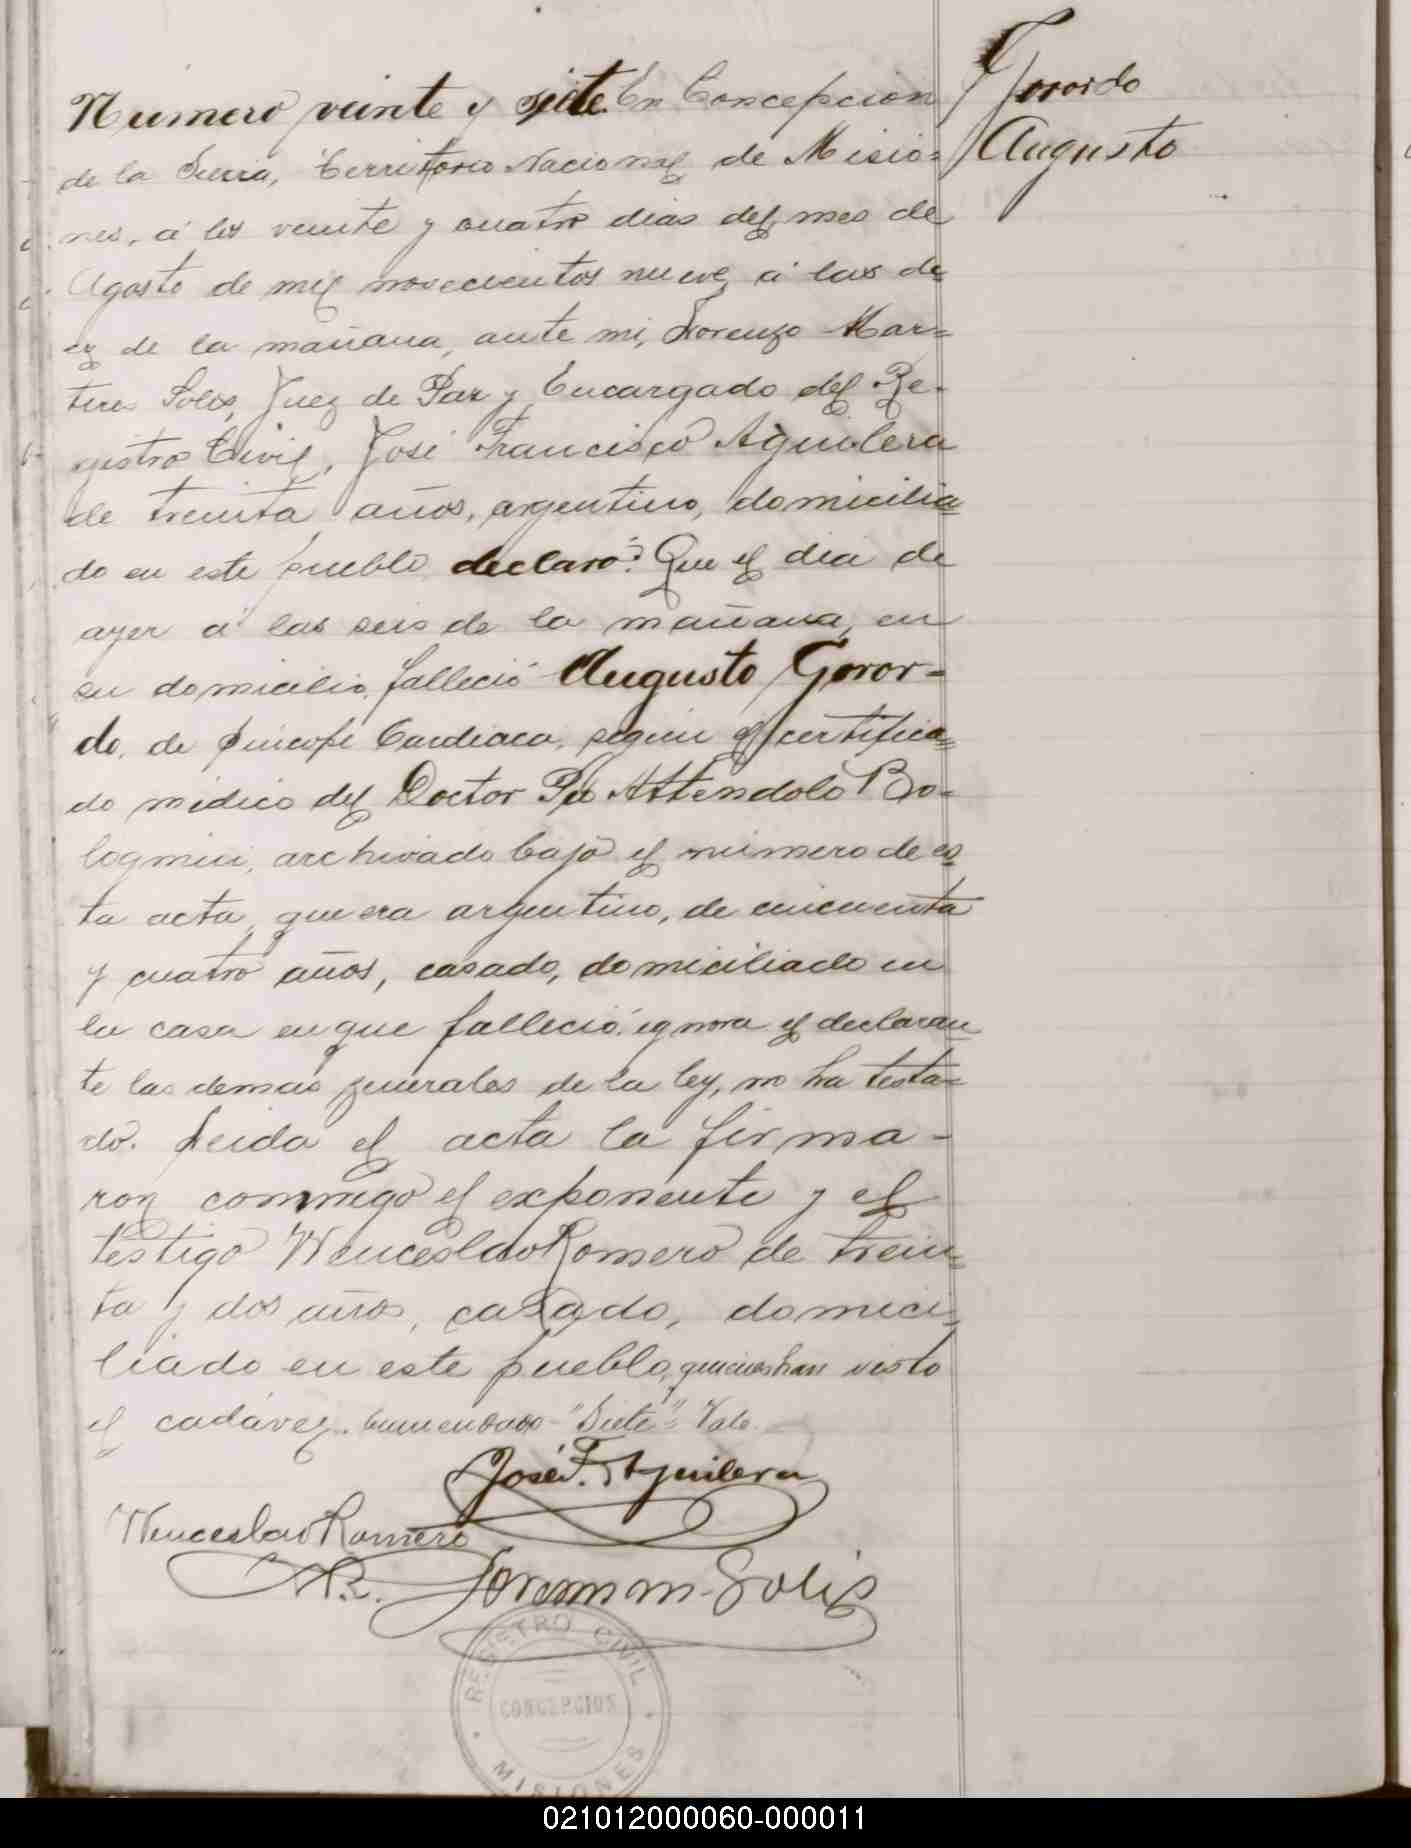 Gorordo
Augusto
Número veinte y siete. En Concepcion
de la Sierra, Territorio Nacional de Misio=
nes, á los veinte y cuatro dias del mes de
Agosto de mil novecientos nueve, á las di
ez de la mañana, ante mi, Lorenzo Mar=
tires Solis, Juez de Paz y Encargado del Re-
gistro Civil, José Francisco Aguilera
de treinta años, argentino, domicilia=
do en este pueblo declaró: Que el dia de
ayer á las seis de la mañana, en
su domicilio, falleció Augusto Goror=
do, de Síncope Cardiaca, según el certifica=
do médico del Doctor Pio Attendolo Bo=
logmini, archivado bajo el número de es
ta acta, que era argentino, de cincuenta
y cuatro años, casado, domiciliado en
la casa en que falleció: ignora el declaran
te las demas generales de la ley, no ha testa=
do. Leida el acta la firma-
ron conmigo el exponente y el
testigo Wenceslao Romero de trein=
ta y dos años, casado, domici=
liado en este pueblo, quienes han visto
el cadáver. Enmendado "Siete" = Vale.
José F. Aguilera
Wenceslao Romero
Lorenzo M. Solis
REGISTRO CIVIL
CONCEPCION
MISIONES
021012000060-000011